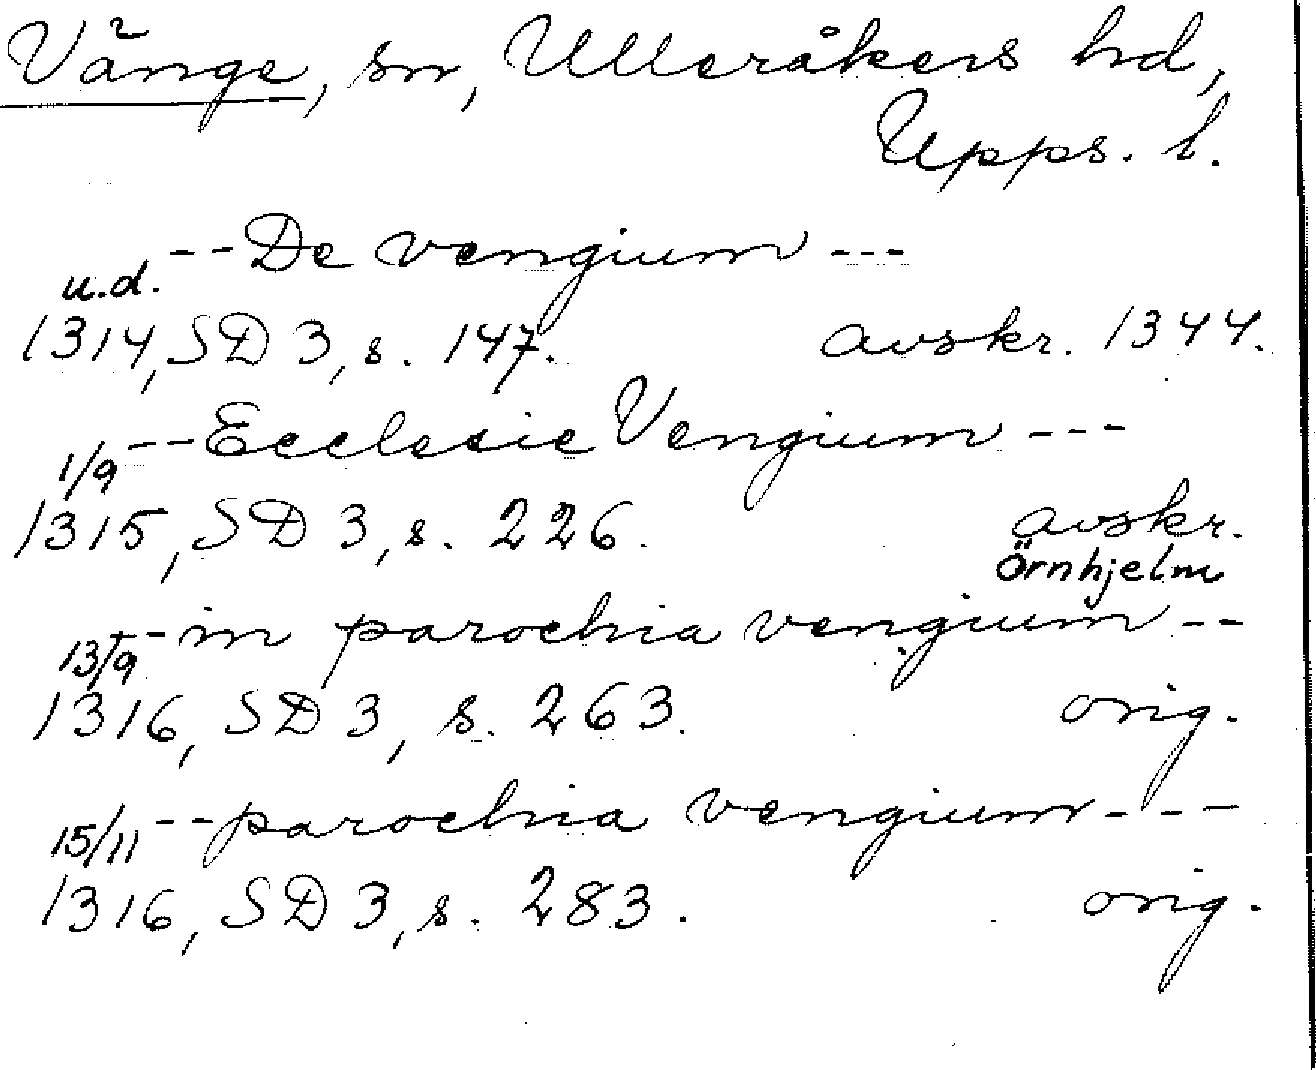 Vänge, sn, Ulleråkers hd,
Upps. l.
-- De vengium ---
u.d.
1314, SD 3, s. 147. avskr. 1344.
-- Ecclesie Vengium ---
1/9
1315, SD 3, s. 226. avskr.
Örnhjelm
-- in parochia vengium --
13/9
1316, SD 3, s. 263. orig.
-- parochia vengium ---
15/11
1316, SD 3, s. 283. orig.